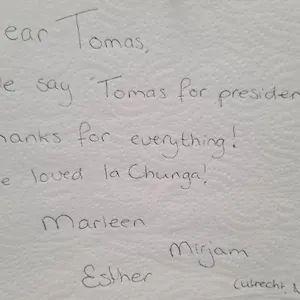 ear Tomas,
e say "Tomas for presiden
hanks for everything!
e loved la Chunga!
Marleen
Mirjam
Esther
(Utrecht, N